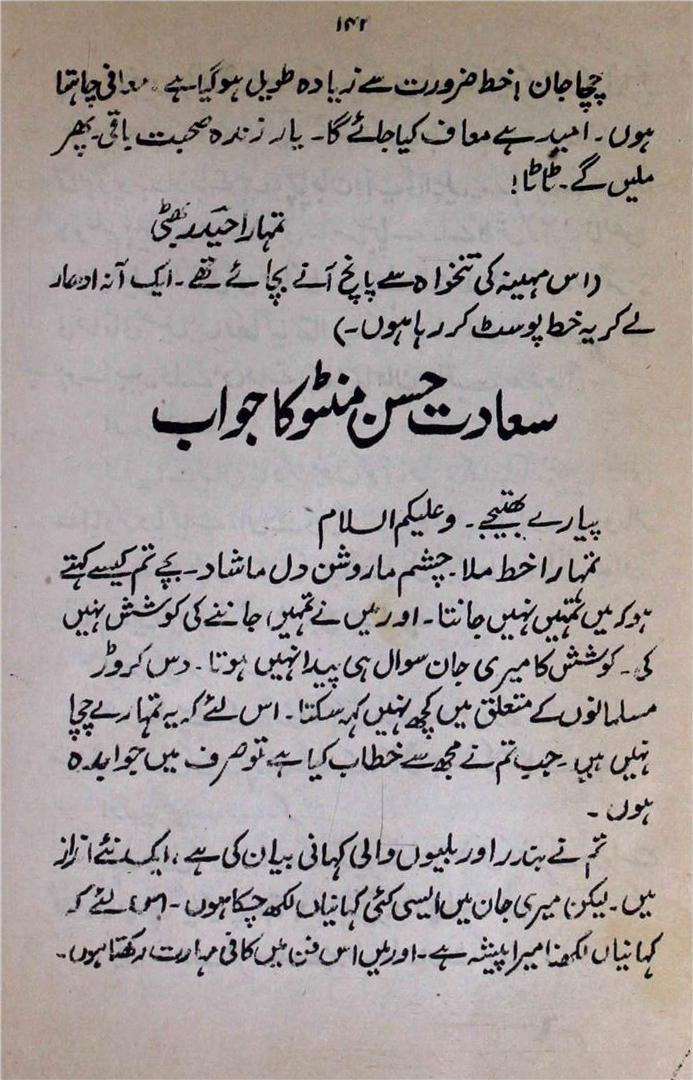 ۱۴۲
چچا جان ! خط ضرورت سے زیادہ طویل ہو گیا ہے۔ معافی چاہتا
ہوں۔ امید ہے معاف کیا جائے گا۔ یار زندہ صحبت باقی۔ پھر
ملیں گے۔ ٹاٹا!
تمہارا حیدر بھٹی
(اس مہینہ کی تنخواہ سے پانچ آنے بچائے تھے۔ ایک آنہ ادھار
لے کر یہ خط پوسٹ کر رہا ہوں۔)
سعادت حسن منٹو کا جواب
پیارے بھتیجے۔ وعلیکم السلام
تمہارا خط ملا۔ چشم ما روشن دل ما شاد۔ بچے تم کیسے کہتے
ہو کہ میں تمہیں نہیں جانتا۔ اور میں نے تمہیں جاننے کی کوشش نہیں
کی۔ کوشش کا میری جان سوال ہی پیدا نہیں ہوتا۔ دس کروڑ
مسلمانوں کے متعلق میں کچھ نہیں کہہ سکتا۔ اس لئے کہ یہ تمہارے چچا
نہیں ہیں۔ جب تم نے مجھ سے خطاب کیا ہے تو صرف میں جوابدہ
ہوں۔
تم نے بندر اور بلیوں والی کہانی بیان کی ہے، ایک نئے انداز
میں۔ لیکن میری جان میں ایسی کئی کہانیاں لکھ چکا ہوں۔ اس لئے کہ
کہانیاں لکھنا میرا پیشہ ہے۔ اور میں اس فن میں کافی مہارت رکھتا ہوں۔